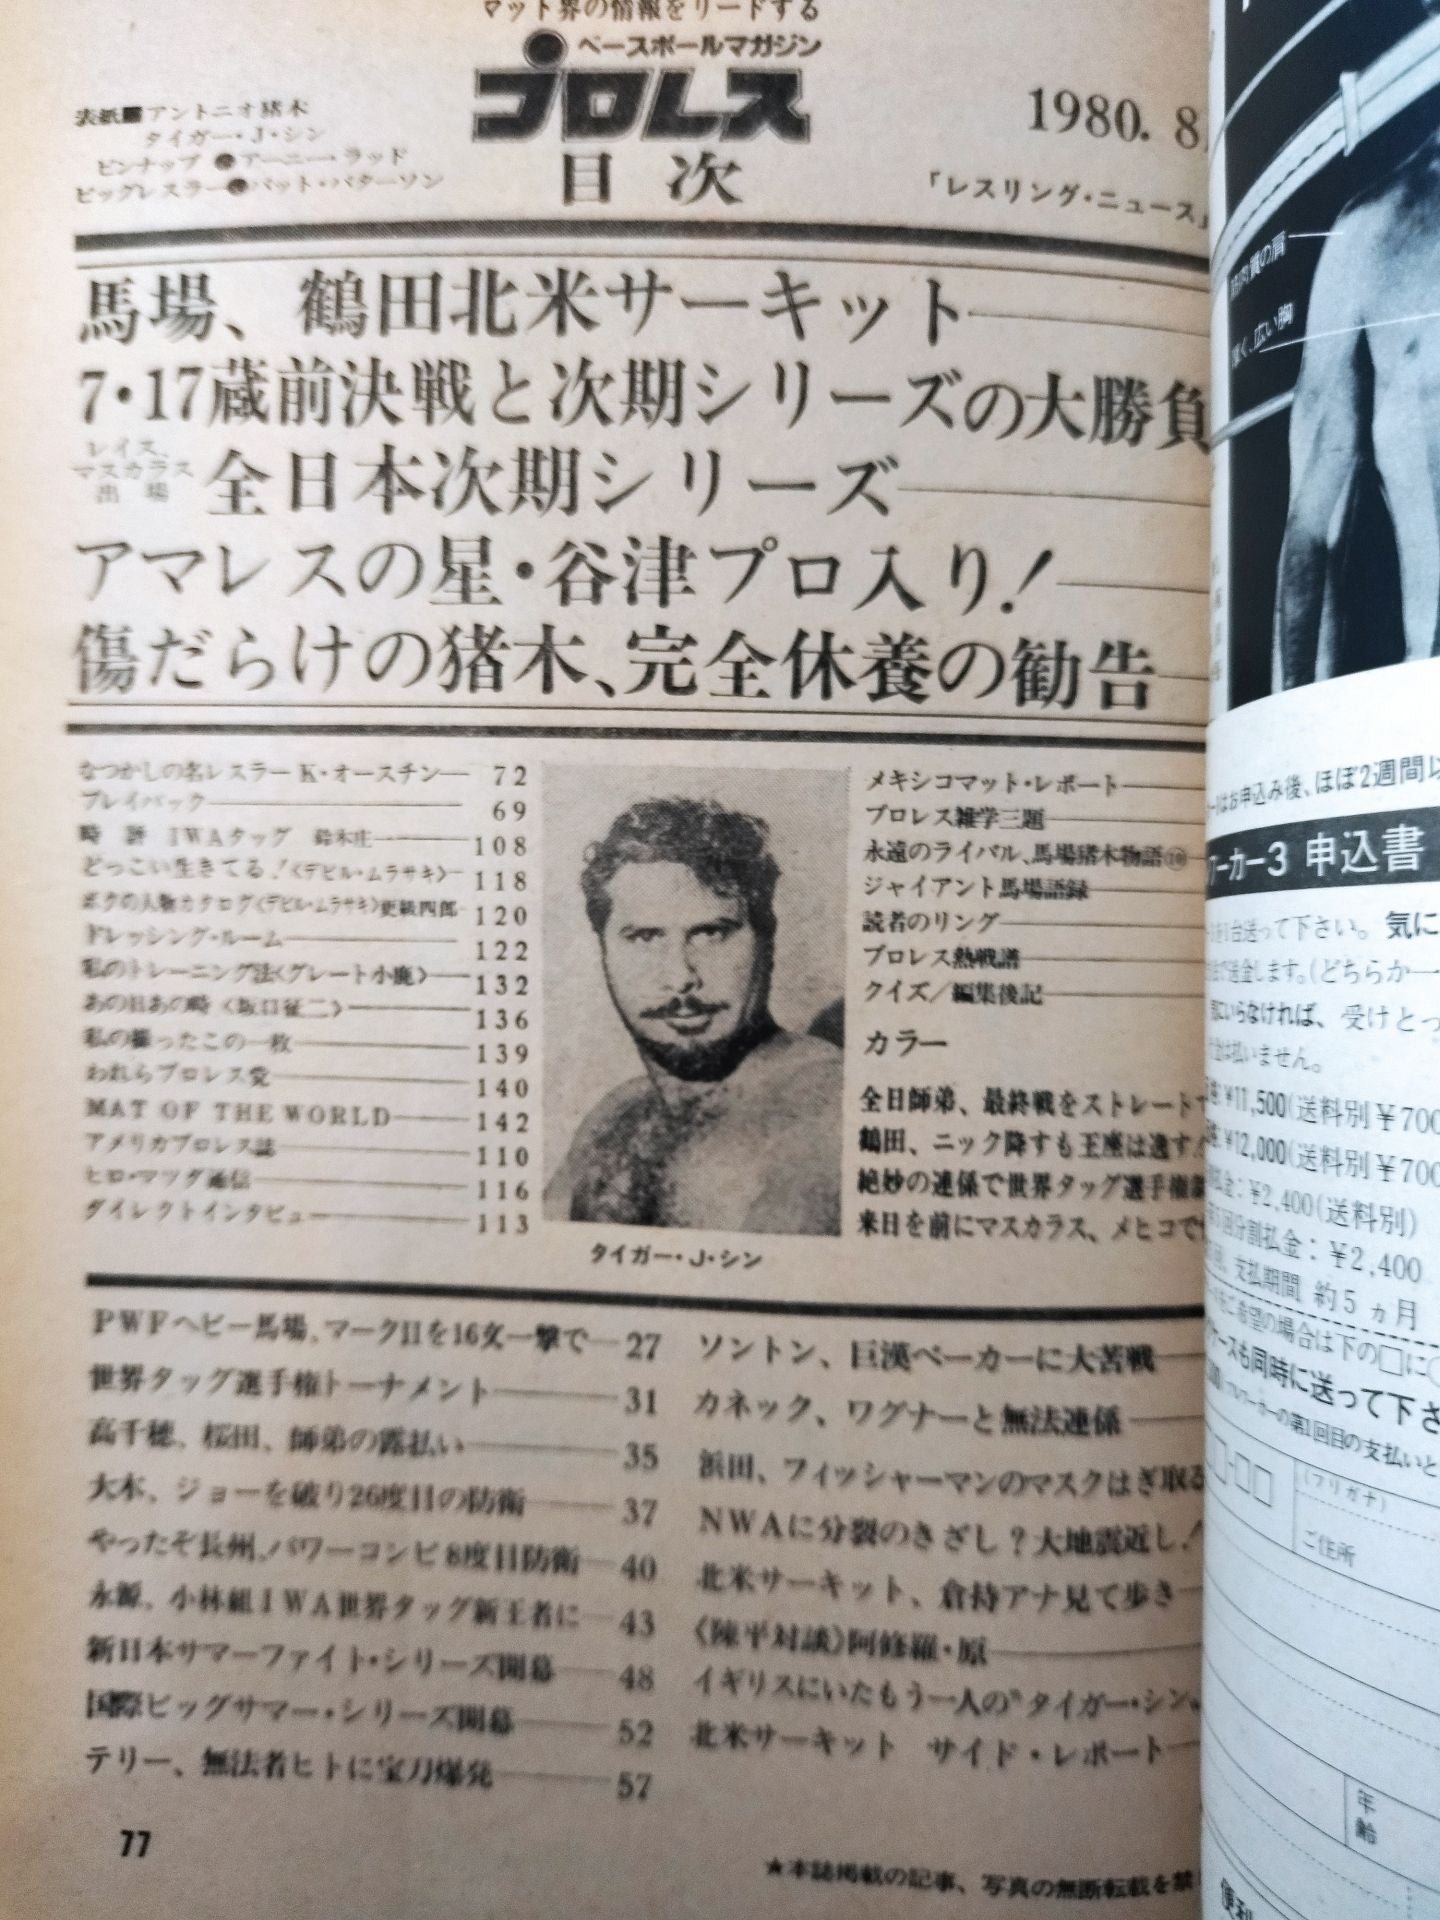 マット界の情報をリードする
ベースボールマガジン
プロレス
目次
1980. 8
表紙■アントニオ猪木
タイガー・J・シン
ピンナップ●アーニー・ラッド
ビッグレスラー●パット・パターソン
「レスリング・ニュース」
馬場、鶴田北米サーキット
7・17蔵前決戦と次期シリーズの大勝負
レイス、マスカラス出場 全日本次期シリーズ
アマレスの星・谷津プロ入り!
傷だらけの猪木、完全休養の勧告
なつかしの名レスラー K・オースチン 72
プレイバック 69
時評 IWAタッグ 鈴木庄 108
どっこい生きてる!〈デビル・ムラサキ〉 118
ボクの人物カタログ〈デビル・ムラサキ〉更級四郎 120
ドレッシング・ルーム 122
私のトレーニング法〈グレート小鹿〉 132
あの日あの時〈坂口征二〉 136
私の撮ったこの一枚 139
われらプロレス党 140
MAT OF THE WORLD 142
アメリカプロレス誌 110
ヒロ・マツダ通信 116
ダイレクトインタビュー 113
タイガー・J・シン
メキシコマット・レポート
プロレス雑学三題
永遠のライバル、馬場猪木物語
ジャイアント馬場語録
読者のリング
プロレス熱戦譜
クイズ/編集後記
カラー
全日師弟、最終戦をストレートで
鶴田、ニック降すも王座は逸す!
絶妙の連係で世界タッグ選手権
来日を前にマスカラス、メヒコで
PWFヘビー馬場、マークIIを16文一撃で 27
世界タッグ選手権トーナメント 31
高千穂、桜田、師弟の露払い 35
大木、ジョーを破り26度目の防衛 37
やったぞ長州、パワーコンビ8度目防衛 40
永源、小林組IWA世界タッグ新王者に 43
新日本サマーファイト・シリーズ開幕 48
国際ビッグサマー・シリーズ開幕 52
テリー、無法者ヒトに宝刀爆発 57
ソントン、巨漢ベーカーに大苦戦
カネック、ワグナーと無法連係
浜田、フィッシャーマンのマスクはぎ取る
NWAに分裂のきざし?大地震近し!
北米サーキット、倉持アナ見て歩き
《陳平対談》阿修羅・原
イギリスにいたもう一人の"タイガー・シン"
北米サーキット サイド・レポート
77
★本誌掲載の記事、写真の無断転載を禁
筋肉質の肩
広い胸
お申込み後、ほぼ2週間以
ワーカー3 申込書
1台送って下さい。気に
で送金します。(どちらか一
にいらなければ、受けとっ
金は払いません。
¥11,500(送料別¥700
¥12,000(送料別¥700
払金:¥2,400(送料別)
回分割払金:¥2,400
回、支払期間 約5ヵ月
ご希望の場合は下の□に
ケースも同時に送って下さ
ブルワーカーの第1回目の支払いと
(フリガナ)
ご住所
年齢
便利